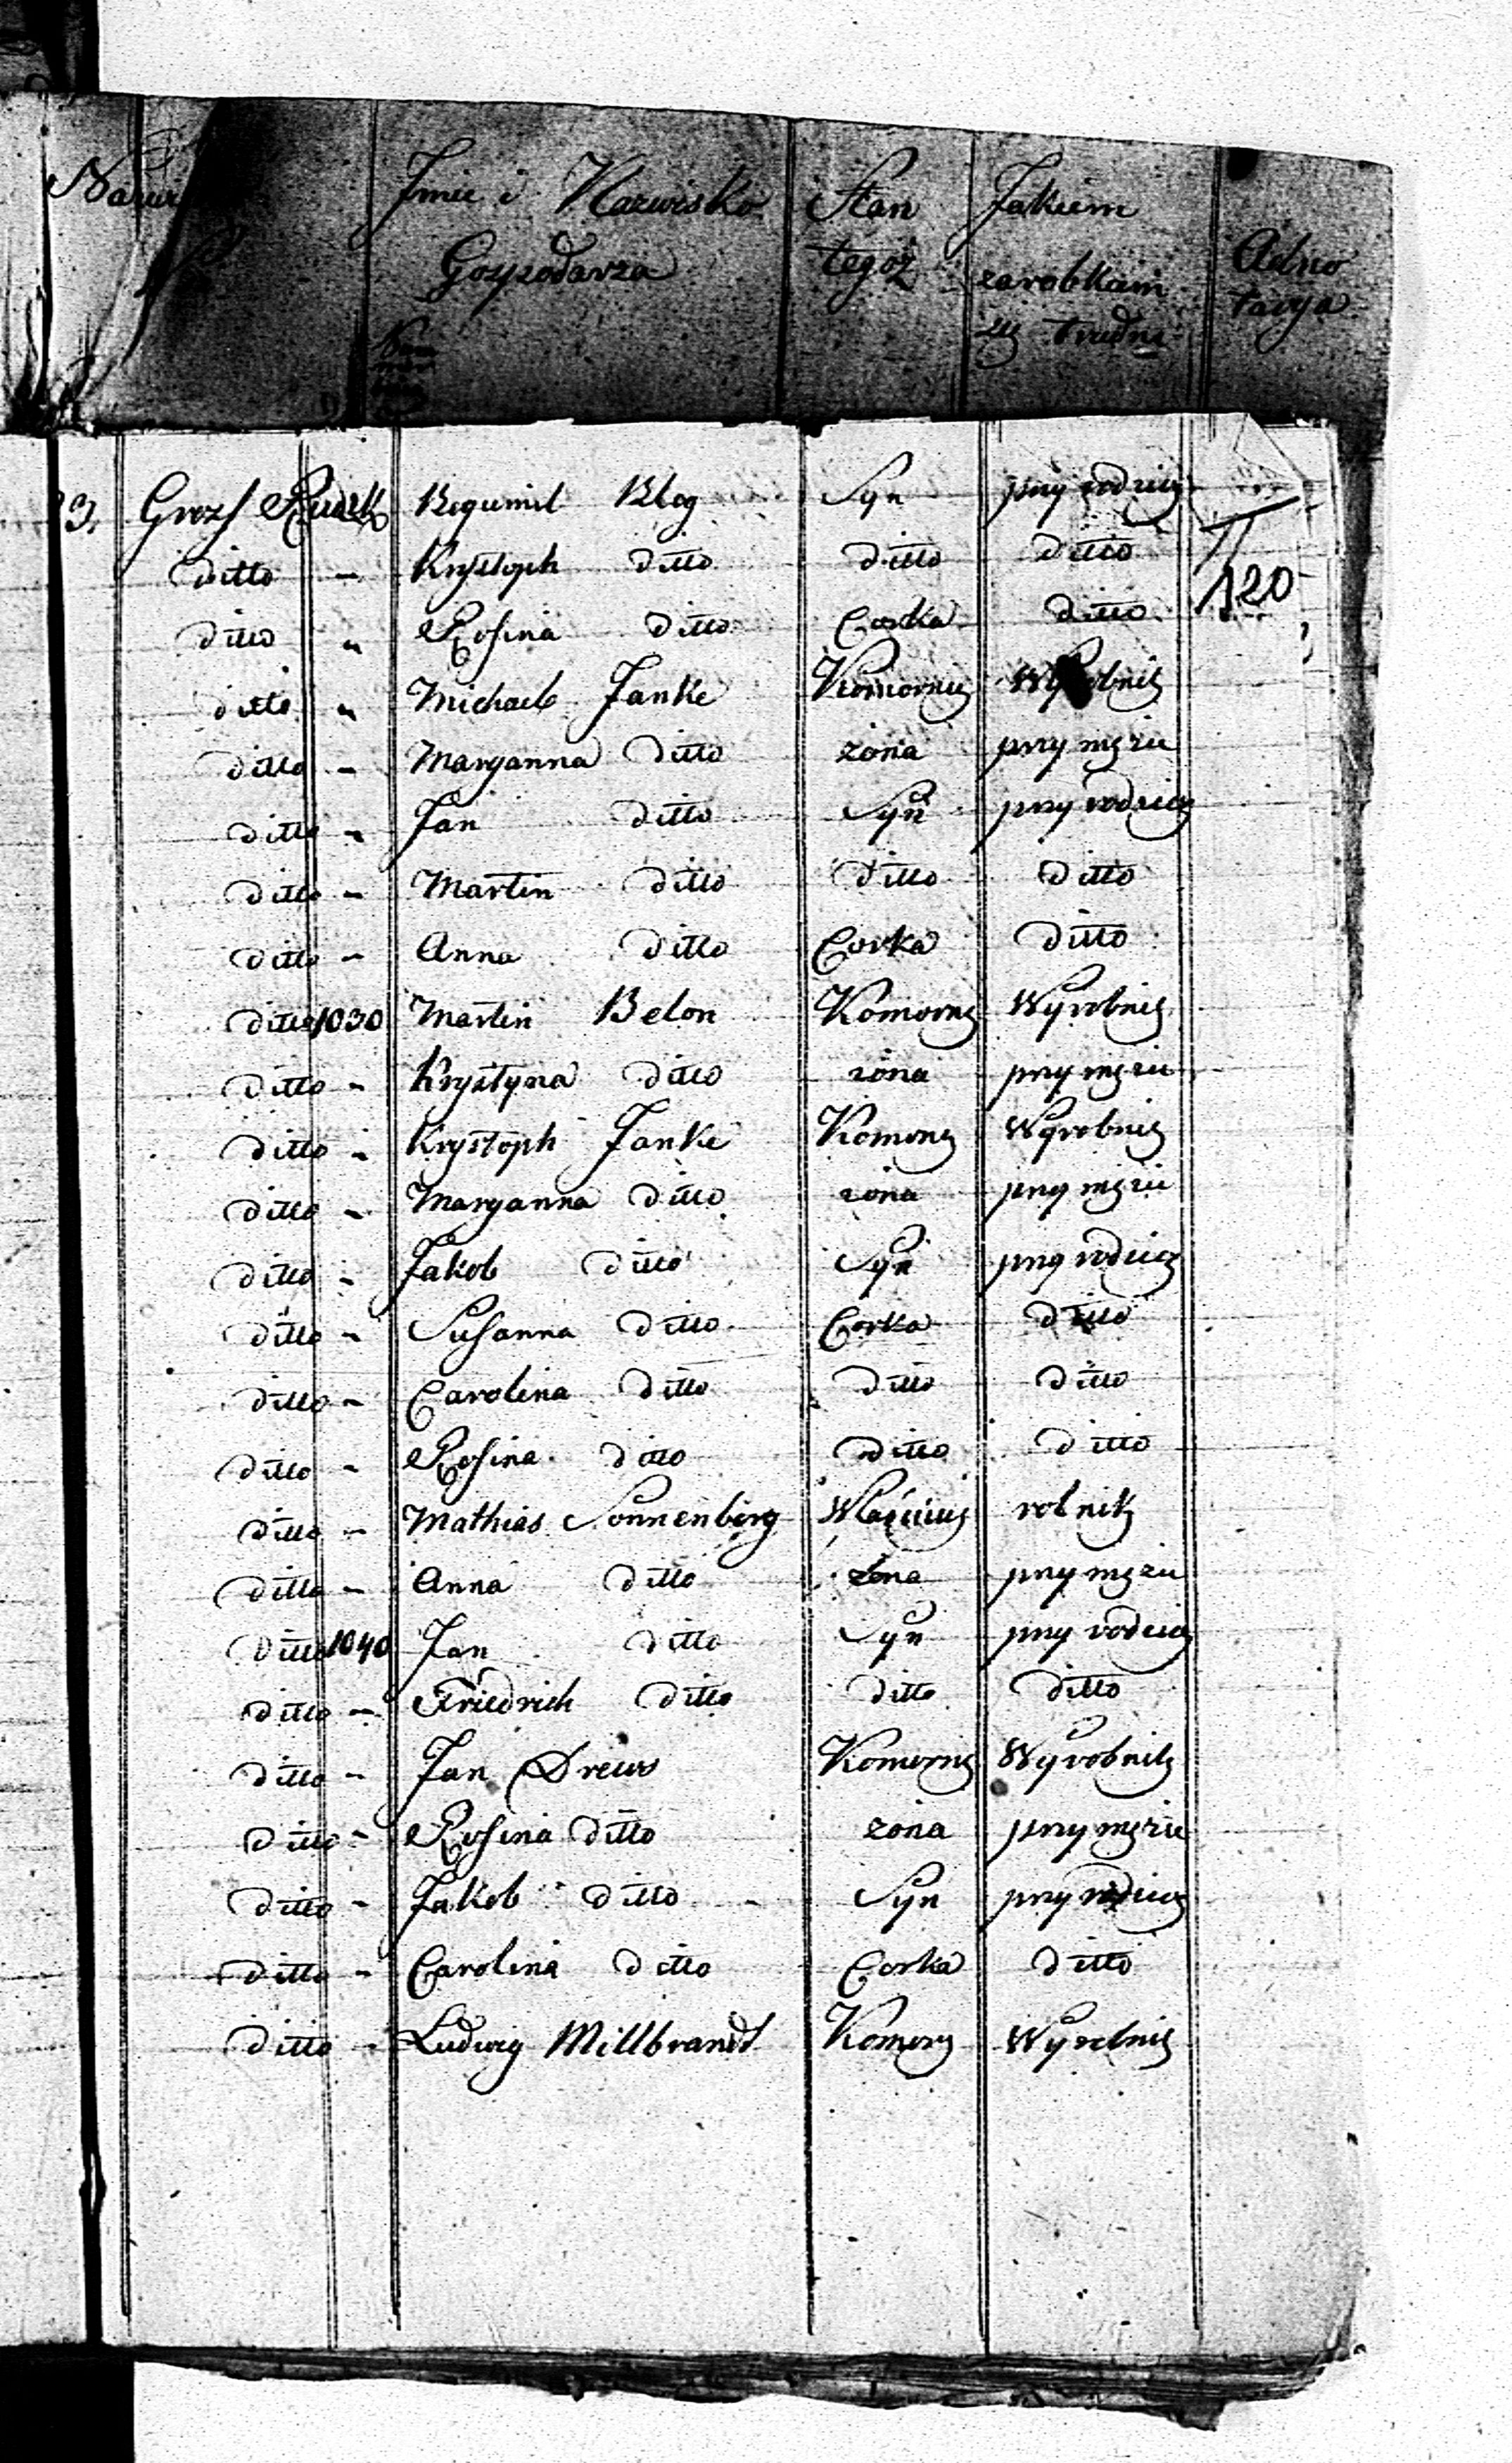 Imie i Nazwisko Gospodarza Stan tegoż Jakiem zarobkiem się trudni Adnotacya
3. Grozs Bogumil Bleg Syn przy rodzicz
ditto - Krystoph ditto ditto ditto
120
ditto " Rosina ditto Corka ditto
ditto " Michael Janke Komornig Wyrobnig
ditto - Maryanna ditto żona przy mężu
ditto - Jan ditto Syn przy rodzicz
ditto - Martin ditto ditto ditto
ditto - Anna ditto Corka ditto
ditto 1030 Martin Belon Komorng Wyrobnig
ditto - Krystyna ditto żona przy mężu
ditto - Krystoph Janke Komorng Wyrobnig
ditto - Maryanna ditto żona przy mężu
ditto - Jakob ditto Syn przy rodzicz
ditto - Susanna ditto Corka ditto
ditto - Carolina ditto ditto ditto
ditto - Rosina ditto ditto ditto
ditto - Mathias Sonnenberg rolnik
ditto - Anna ditto żona przy mężu
ditto 1040 Jan ditto Syn przy rodzicz
ditto - Friedrich ditto ditto ditto
ditto - Jan Drews Komorng Wyrobnig
ditto - Rosina ditto żona przy mężu
ditto - Jakob ditto Syn przy rodzicz
ditto - Carolina ditto Corka ditto
ditto - Ludwig Millbrandt Komorng Wyrobnig